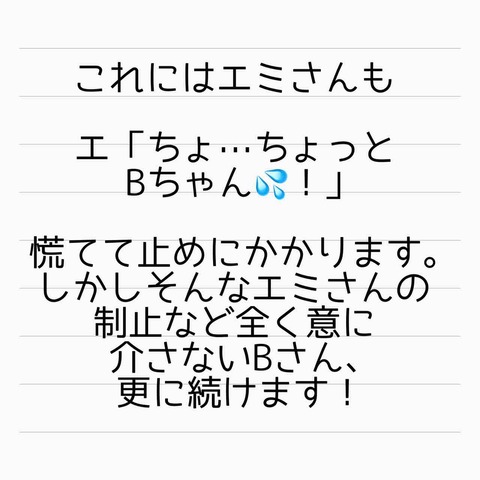 これにはエミさんも
エ「ちょ…ちょっと
Bちゃん💦！」
慌てて止めにかかります。
しかしそんなエミさんの
制止など全く意に
介さないBさん、
更に続けます！